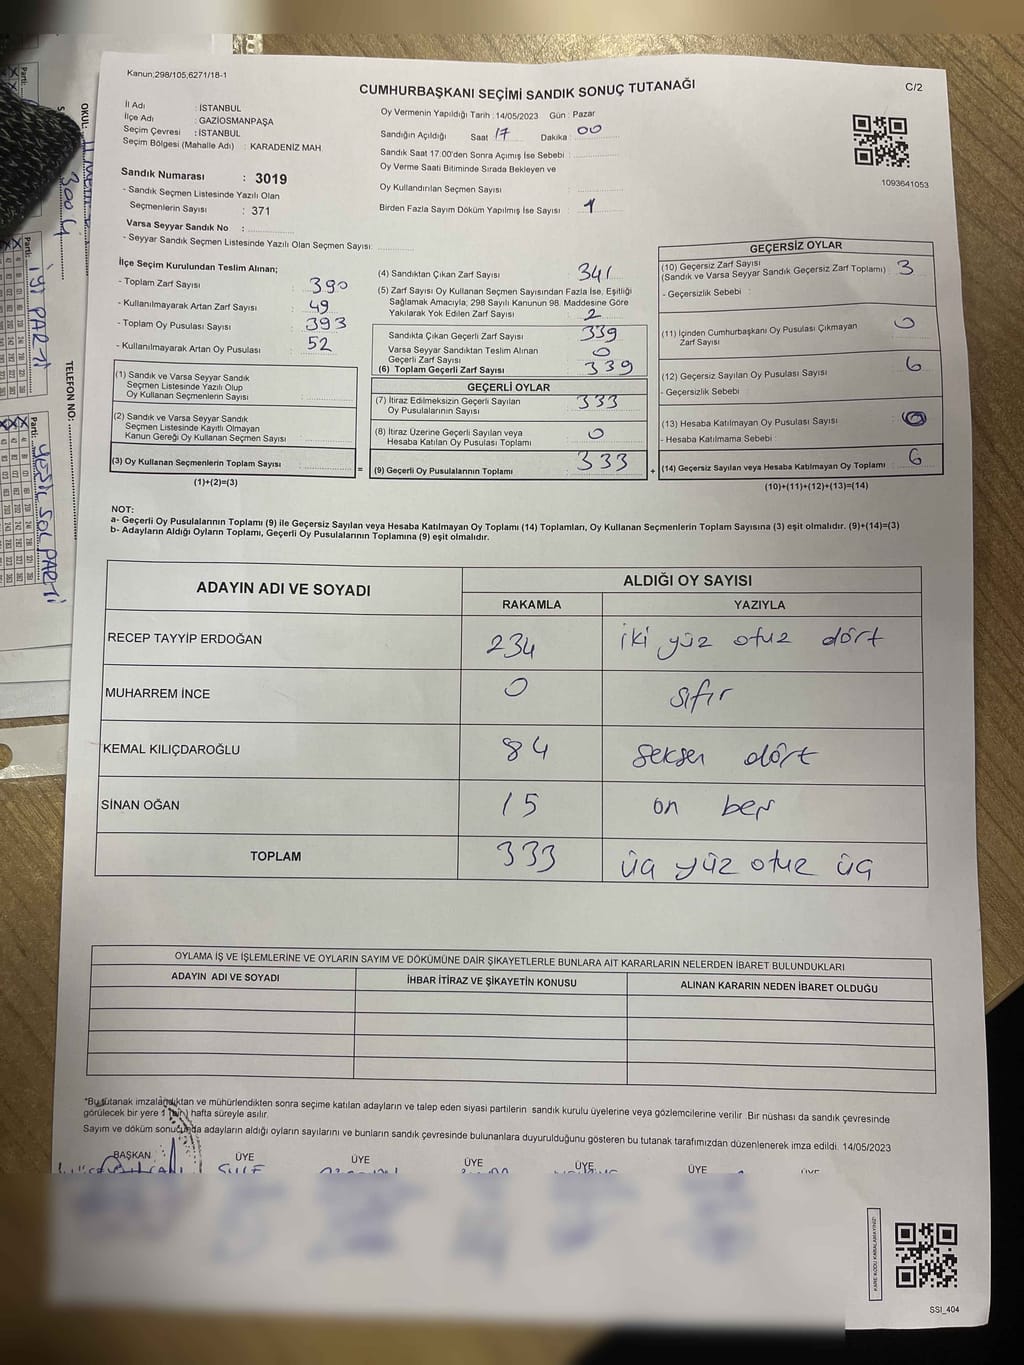 Kanun;298/105,6271/18-1
CUMHURBAŞKANI SEÇİMİ SANDIK SONUÇ TUTANAĞI
C/2
İl Adı : İSTANBUL
İlçe Adı : GAZİOSMANPAŞA
Seçim Çevresi : İSTANBUL
Seçim Bölgesi (Mahalle Adı) : KARADENİZ MAH
Sandık Numarası : 3019
- Sandık Seçmen Listesinde Yazılı Olan
Seçmenlerin Sayısı : 371
Varsa Seyyar Sandık No :
- Seyyar Sandık Seçmen Listesinde Yazılı Olan Seçmen Sayısı:
Oy Vermenin Yapıldığı Tarih : 14/05/2023 Gün : Pazar
Sandığın Açıldığı Saat 17 Dakika : 00
Sandık Saat 17:00'den Sonra Açımış İse Sebebi :
Oy Verme Saati Bitiminde Sırada Bekleyen ve
Oy Kullandırılan Seçmen Sayısı :
Birden Fazla Sayım Döküm Yapılmış İse Sayısı : 1
1093641053
İlçe Seçim Kurulundan Teslim Alınan;
- Toplam Zarf Sayısı : 390
- Kullanılmayarak Artan Zarf Sayısı : 49
- Toplam Oy Pusulası Sayısı : 393
- Kullanılmayarak Artan Oy Pusulası : 52
(1) Sandık ve Varsa Seyyar Sandık
Seçmen Listesinde Yazılı Olup
Oy Kullanan Seçmenlerin Sayısı :
(2) Sandık ve Varsa Seyyar Sandık
Seçmen Listesinde Kayıtlı Olmayan
Kanun Gereği Oy Kullanan Seçmen Sayısı :
(3) Oy Kullanan Seçmenlerin Toplam Sayısı :
(1)+(2)=(3)
=
(4) Sandıktan Çıkan Zarf Sayısı : 341
(5) Zarf Sayısı Oy Kullanan Seçmen Sayısından Fazla İse, Eşitliği
Sağlamak Amacıyla; 298 Sayılı Kanunun 98. Maddesine Göre
Yakılarak Yok Edilen Zarf Sayısı : 2
Sandıkta Çıkan Geçerli Zarf Sayısı : 339
Varsa Seyyar Sandıktan Teslim Alınan
Geçerli Zarf Sayısı : 0
(6) Toplam Geçerli Zarf Sayısı : 339
GEÇERLİ OYLAR
(7) İtiraz Edilmeksizin Geçerli Sayılan
Oy Pusulalarının Sayısı : 333
(8) İtiraz Üzerine Geçerli Sayılan veya
Hesaba Katılan Oy Pusulası Toplamı : 0
(9) Geçerli Oy Pusulalarının Toplamı : 333
+
GEÇERSİZ OYLAR
(10) Geçersiz Zarf Sayısı
(Sandık ve Varsa Seyyar Sandık Geçersiz Zarf Toplamı) : 3
- Geçersizlik Sebebi :
(11) İçinden Cumhurbaşkanı Oy Pusulası Çıkmayan
Zarf Sayısı : 0
(12) Geçersiz Sayılan Oy Pusulası Sayısı : 6
- Geçersizlik Sebebi :
(13) Hesaba Katılmayan Oy Pusulası Sayısı : 0
- Hesaba Katılmama Sebebi :
(14) Geçersiz Sayılan veya Hesaba Katılmayan Oy Toplamı : 6
(10)+(11)+(12)+(13)=(14)
NOT:
a- Geçerli Oy Pusulalarının Toplamı (9) ile Geçersiz Sayılan veya Hesaba Katılmayan Oy Toplamı (14) Toplamları, Oy Kullanan Seçmenlerin Toplam Sayısına (3) eşit olmalıdır. (9)+(14)=(3)
b- Adayların Aldığı Oyların Toplamı, Geçerli Oy Pusulalarının Toplamına (9) eşit olmalıdır.
ADAYIN ADI VE SOYADI
ALDIĞI OY SAYISI
RAKAMLA YAZIYLA
RECEP TAYYİP ERDOĞAN 234 iki yüz otuz dört
MUHARREM İNCE 0 sıfır
KEMAL KILIÇDAROĞLU 84 seksen dört
SİNAN OĞAN 15 on beş
TOPLAM 333 üç yüz otuz üç
OYLAMA İŞ VE İŞLEMLERİNE VE OYLARIN SAYIM VE DÖKÜMÜNE DAİR ŞİKAYETLERLE BUNLARA AİT KARARLARIN NELERDEN İBARET BULUNDUKLARI
ADAYIN ADI VE SOYADI İHBAR İTİRAZ VE ŞİKAYETİN KONUSU ALINAN KARARIN NEDEN İBARET OLDUĞU
*Bu tutanak imzalandıktan ve mühürlendikten sonra seçime katılan adayların ve talep eden siyasi partilerin sandık kurulu üyelerine veya gözlemcilerine verilir. Bir nüshası da sandık çevresinde
görülecek bir yere 1 (bir) hafta süreyle asılır.
Sayım ve döküm sonucunda adayların aldığı oyların sayılarını ve bunların sandık çevresinde bulunanlara duyurulduğunu gösteren bu tutanak tarafımızdan düzenlenerek imza edildi. 14/05/2023
BAŞKAN ÜYE ÜYE ÜYE ÜYE ÜYE ÜYE
KARE KODU KARALAMAYINIZ!
SSI_404
OKUL:
3004
TELEFON NO:
Parti:
İYİ PARTİ
Parti:
YEŞİL SOL PARTİ